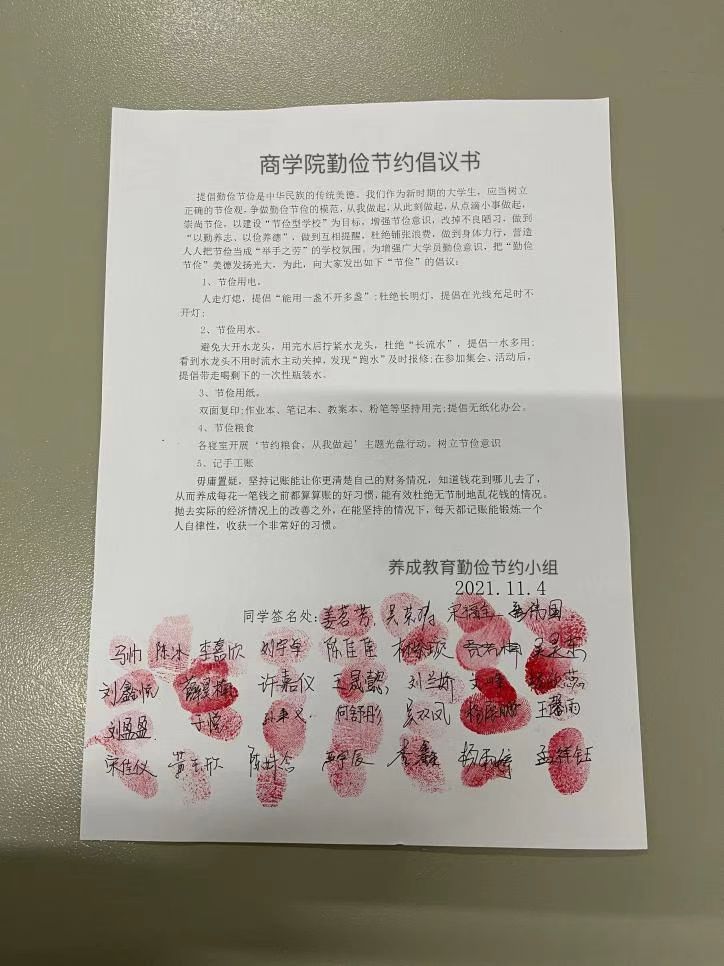 商学院勤俭节约倡议书
提倡勤俭节俭是中华民族的传统美德。我们作为新时期的大学生，应当树立
正确的节俭观，争做勤俭节俭的模范，从我做起，从此刻做起，从点滴小事做起，
崇尚节俭，以建设“节俭型学校”为目标，增强节俭意识，改掉不良陋习，做到
“以勤养志、以俭养德”，做到互相提醒，杜绝铺张浪费，做到身体力行，营造
人人把节俭当成“举手之劳”的学校氛围。为增强广大学员勤俭意识，把“勤俭
节俭”美德发扬光大，为此，向大家发出如下“节俭”的倡议：
1、节俭用电。
人走灯熄，提倡“能用一盏不开多盏”;杜绝长明灯，提倡在光线充足时不
开灯;
2、节俭用水。
避免大开水龙头，用完水后拧紧水龙头，杜绝“长流水”，提倡一水多用;
看到水龙头不用时流水主动关掉，发现“跑水”及时报修;在参加集会、活动后，
提倡带走喝剩下的一次性瓶装水。
3、节俭用纸。
双面复印;作业本、笔记本、教案本、粉笔等坚持用完;提倡无纸化办公。
4、节俭粮食
各寝室开展‘节约粮食，从我做起’主题光盘行动，树立节俭意识
5、记手工账
毋庸置疑，坚持记账能让你更清楚自己的财务情况，知道钱花到哪儿去了，
从而养成每花一笔钱之前都算算账的好习惯,能有效杜绝无节制地乱花钱的情况。
抛去实际的经济情况上的改善之外，在能坚持的情况下，每天都记账能锻炼一个
人自律性，收获一个非常好的习惯。
养成教育勤俭节约小组
2021.11.4
同学签名处：姜茗芳
马帅 陈冰 李嘉欣 刘宇卓 陈佳佳
刘鑫悦 许嘉仪 王晟懿 刘兰娇
刘盈盈 于悦 何舒彤 吴双凤 王馨雨
宋佳仪 李鑫 孟祥钰